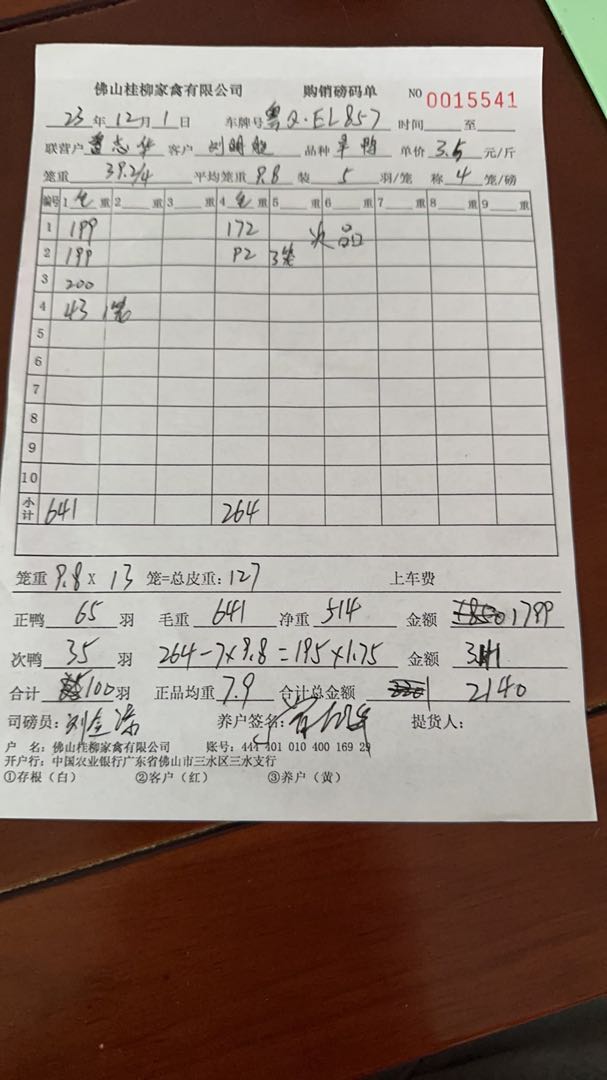 佛山桂柳家禽有限公司 购销磅码单 NO 0015541
23年12月1日 车牌号粤Q·EL857 时间 至
联营户 志华 客户 刘明 品种 鸭 单价 3.5 元/斤
笼重 39.2/4 平均笼重 9.8 装 5 羽/笼 称 4 笼/磅
编号 1 毛 重 2 重 3 重 4 毛 重 5 重 6 重 7 重 8 重 9 重
1 199 172 次品
2 199 92 3笼
3 200
4 43 1笼
5
6
7
8
9
10
小计 641 264
笼重 9.8 X 13 笼=总皮重: 127 上车费
正鸭 65 羽 毛重 641 净重 514 金额 1799
次鸭 35 羽 264-7×9.8=195×1.75 金额 341
合计 100羽 正品均重 7.9 合计总金额 2140
司磅员: 刘金 养户签名: 提货人:
户 名: 佛山桂柳家禽有限公司 账号: 444 401 010 400 169 29
开户行: 中国农业银行广东省佛山市三水区三水支行
①存根（白） ②客户（红） ③养户（黄）